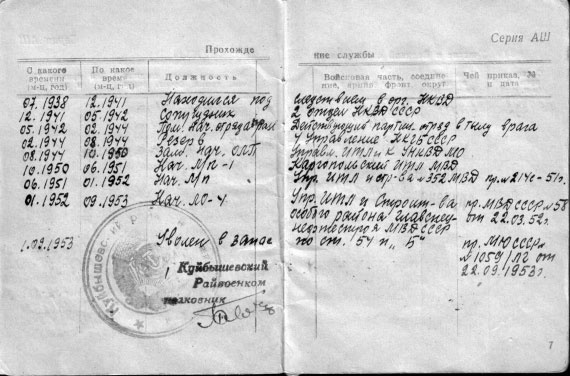 Серия АШ
Прохожде ние службы
С какого времени (м-ц, год) По какое время (м-ц, г д) Должность Войсковая часть, соедине ние, армия фронт, округ Чей приказ, № и дата
07.1938 12.1941 Находился под следствием в орг. НКВД
12.1941 05.1942 Сотрудник 2 отдел НКВД СССР
05.1942 02.1944 Нач. отряда Действующий партиз. отряд в тылу врага
02.1944 08.1944 Резерв Управление НКГБ СССР
08.1944 10.1950 Зам. Нач. ОЛП Управл. ИТЛ и К УНКВД МО
10.1950 06.1951 Нач. МП-1 Каргопольский ИТЛ МВД
06.1951 01.1952 Нач. МП Упр. ИТЛ и стр-ва № 352 МВД пр. № 2146-51г.
01.1952 09.1953 Нач. ЛО-4 Упр. ИТЛ и Строит-ва пр. МВД СССР № 58
особого района Главспец от 22.03.52г.
нефтестроя МВД СССР
1.09.1953 Уволен в запас по ст. 54 п. "Б" пр. МЮ СССР
№ 1059/ЛГ от
22.09.1953г.
Куйбышевский
Райвоенком
полковник
7